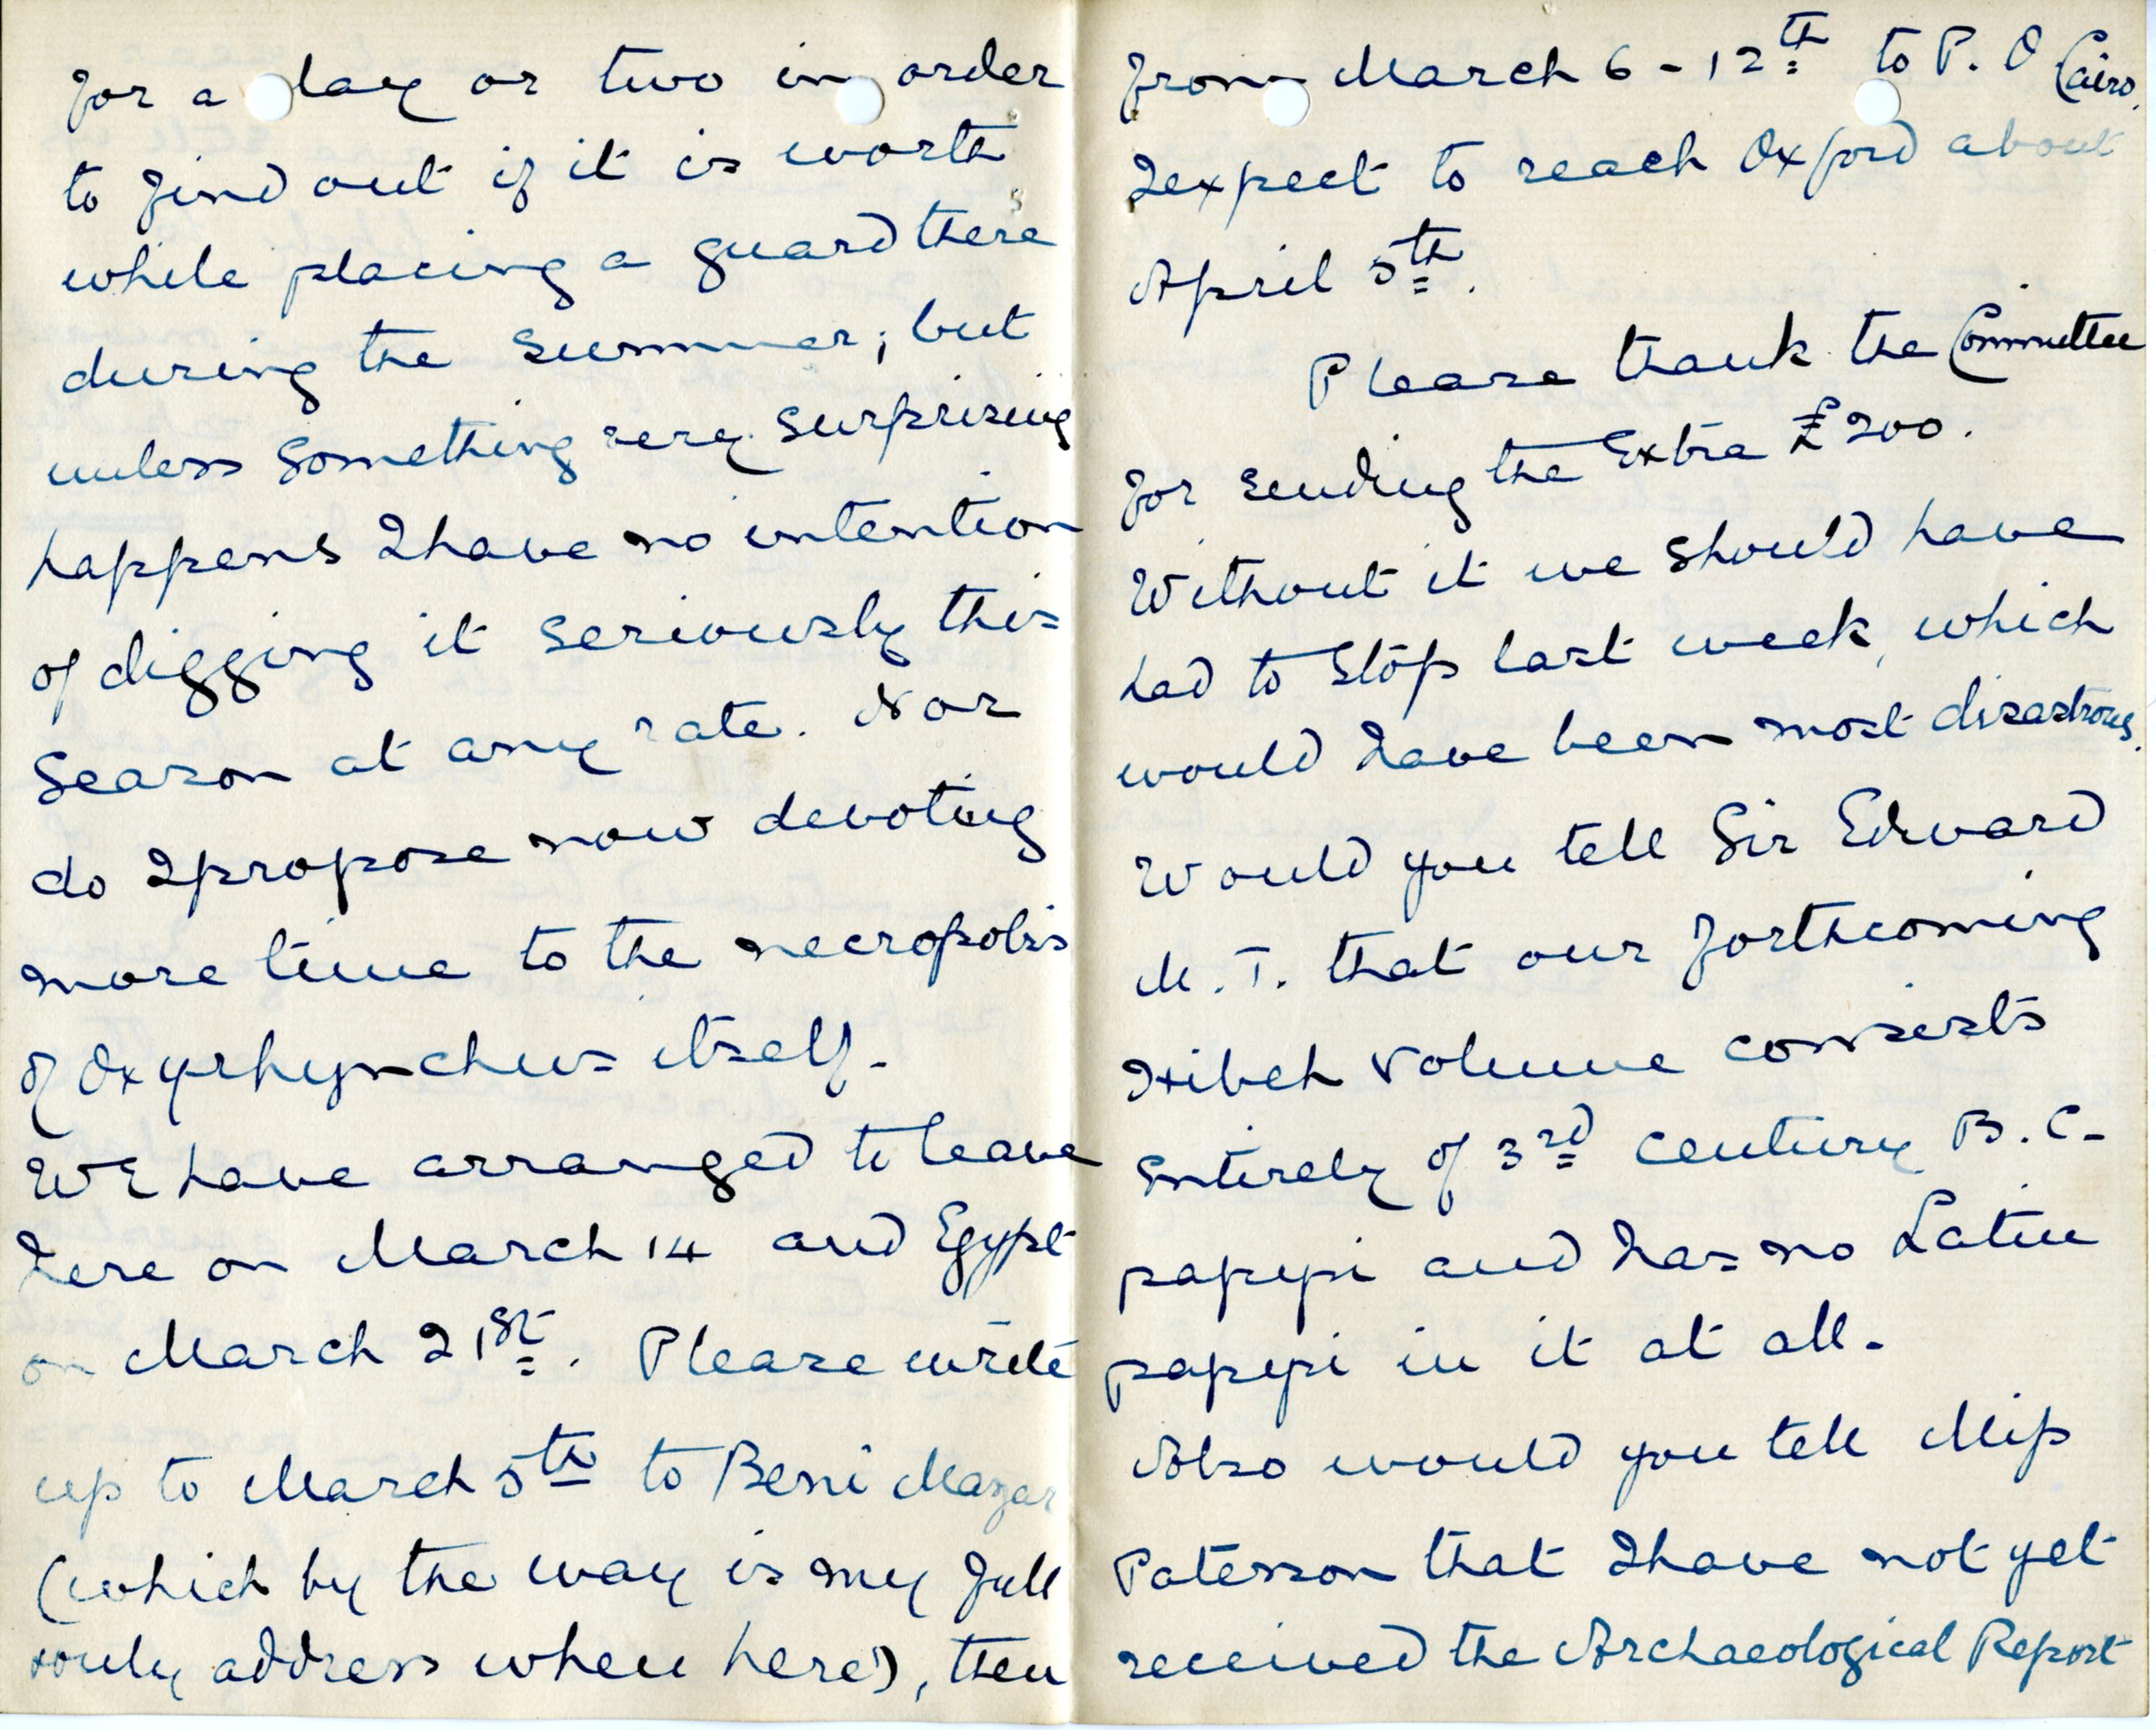 for a day or two in order
to find out if it is worth
while placing a guard there
during the summer; but
unless something very surprising
happens I have no intention
of digging it seriously this
season at any rate. Nor
do I propose now devoting
more time to the necropolis
of Oxyrhynchus itself.
We have arranged to leave
here on March 14 and Egypt
on March 21st. Please write
up to March 5th to Beni Mazar
(which by the way is my full
& only address when here), then
from March 6-12th to P. O Cairo.
I expect to reach Oxford about
April 5th.
Please thank the Committee
for sending the extra £200.
Without it we should have
had to stop last week, which
would have been most disastrous.
Would you tell Sir Edward
M. T. that our forthcoming
Hibeh volume consists
entirely of 3rd century B.C.
papyri and has no Latin
papyri in it at all.
Also would you tell Miss
Paterson that I have not yet
received the Archaeological Report